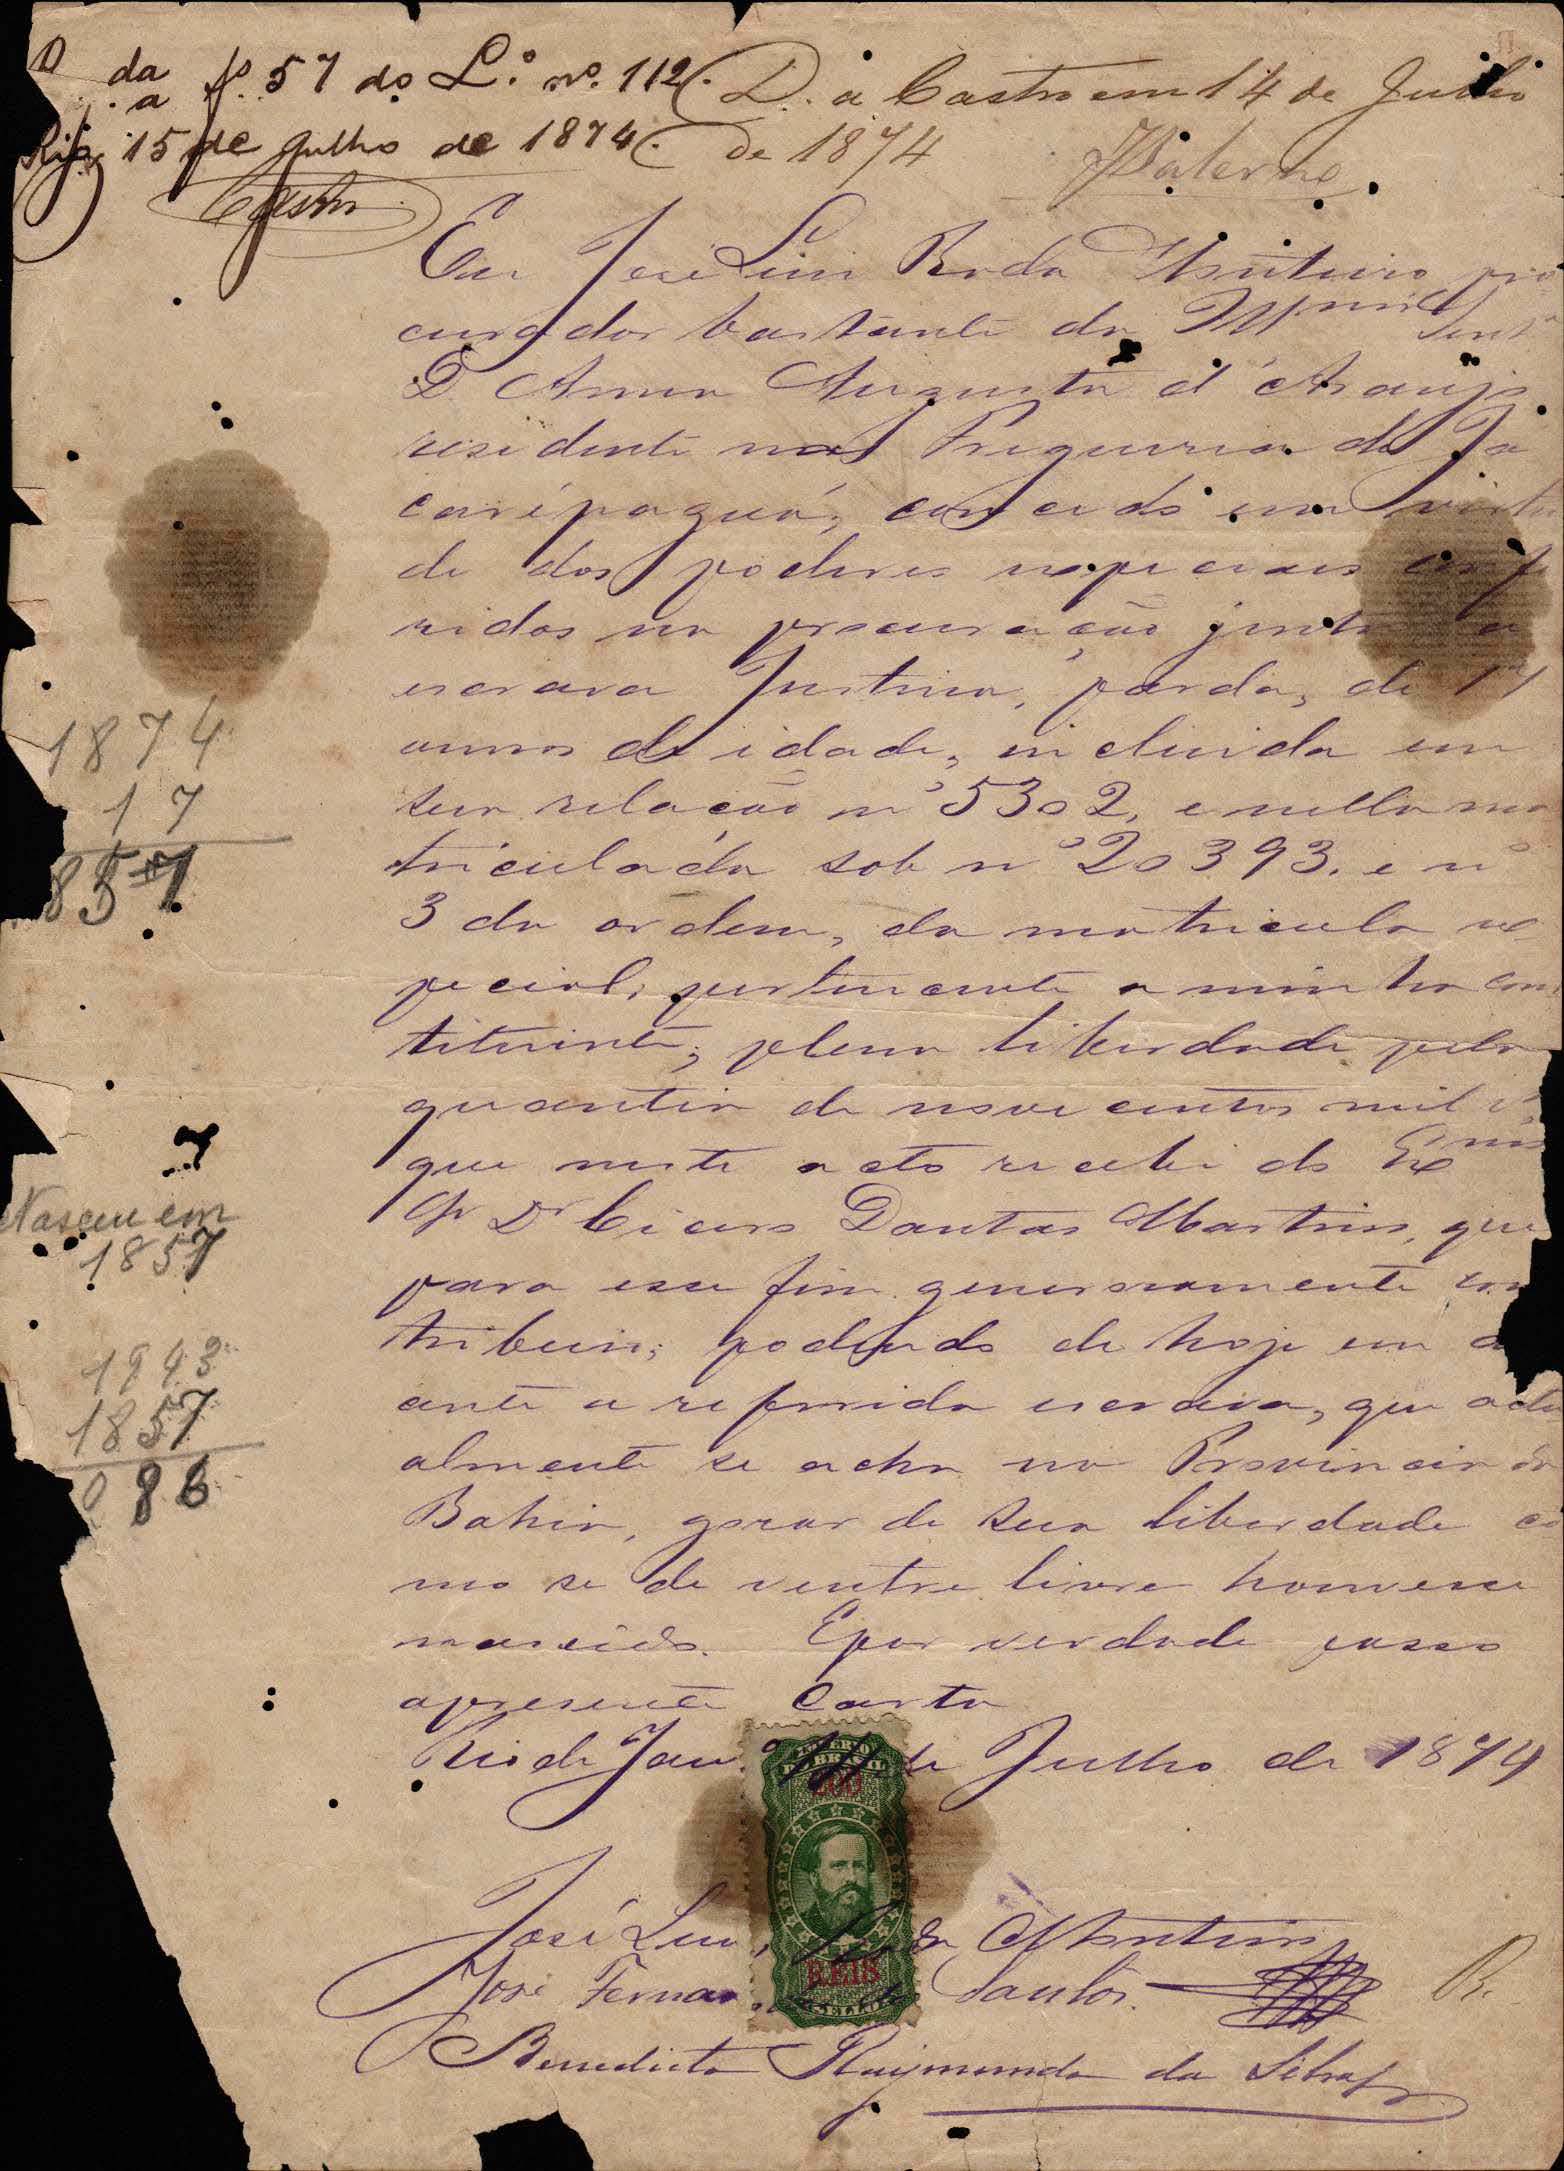 da fº 57 do L.º nº. 112.
a
Rio 15 de Julho de 1874.
Castro
D. a Castro em 14 de Julho
de 1874
Eu José Luis Penda Monteiro pro
curador bastante da Senrª
D. Anna Augusta d'Araujo
residente na Freguesia de Ja
carépaguá, concedo em virtu
de dos poderes especiaes confe
ridos na procuração junta a
escrava Justina, parda, de 17
annos de idade, incluida em
sua relação nº 5302, e nella ma
triculada sob nº 20393. e nº
3 da ordem, da matricula es
pecial, pertencente a minha cons
tituinte; plena liberdade pela
quantia de nove centos mil rs
que neste acto recebi do Exmo
Sr Dr Cicero Dantas Martins, que
para esse fim generosamente con
tribuiu; podendo de hoje em di
ante a referida escrava, que actu
almente se acha na Provincia da
Bahia, gozar de sua liberdade co
mo se de ventre livre houvesse
nascido. E por verdade passo
a presente Carta
Rio de Janº 14 de Julho de 1874
IMPERIO
DO BRASIL
200
REIS
José Luis Penda Monteiro
José Fernandes dos Santos.
R.
Benedicto Raymundo da Silva
1874
17
857
Nasceu em
1857
1943
1857
086